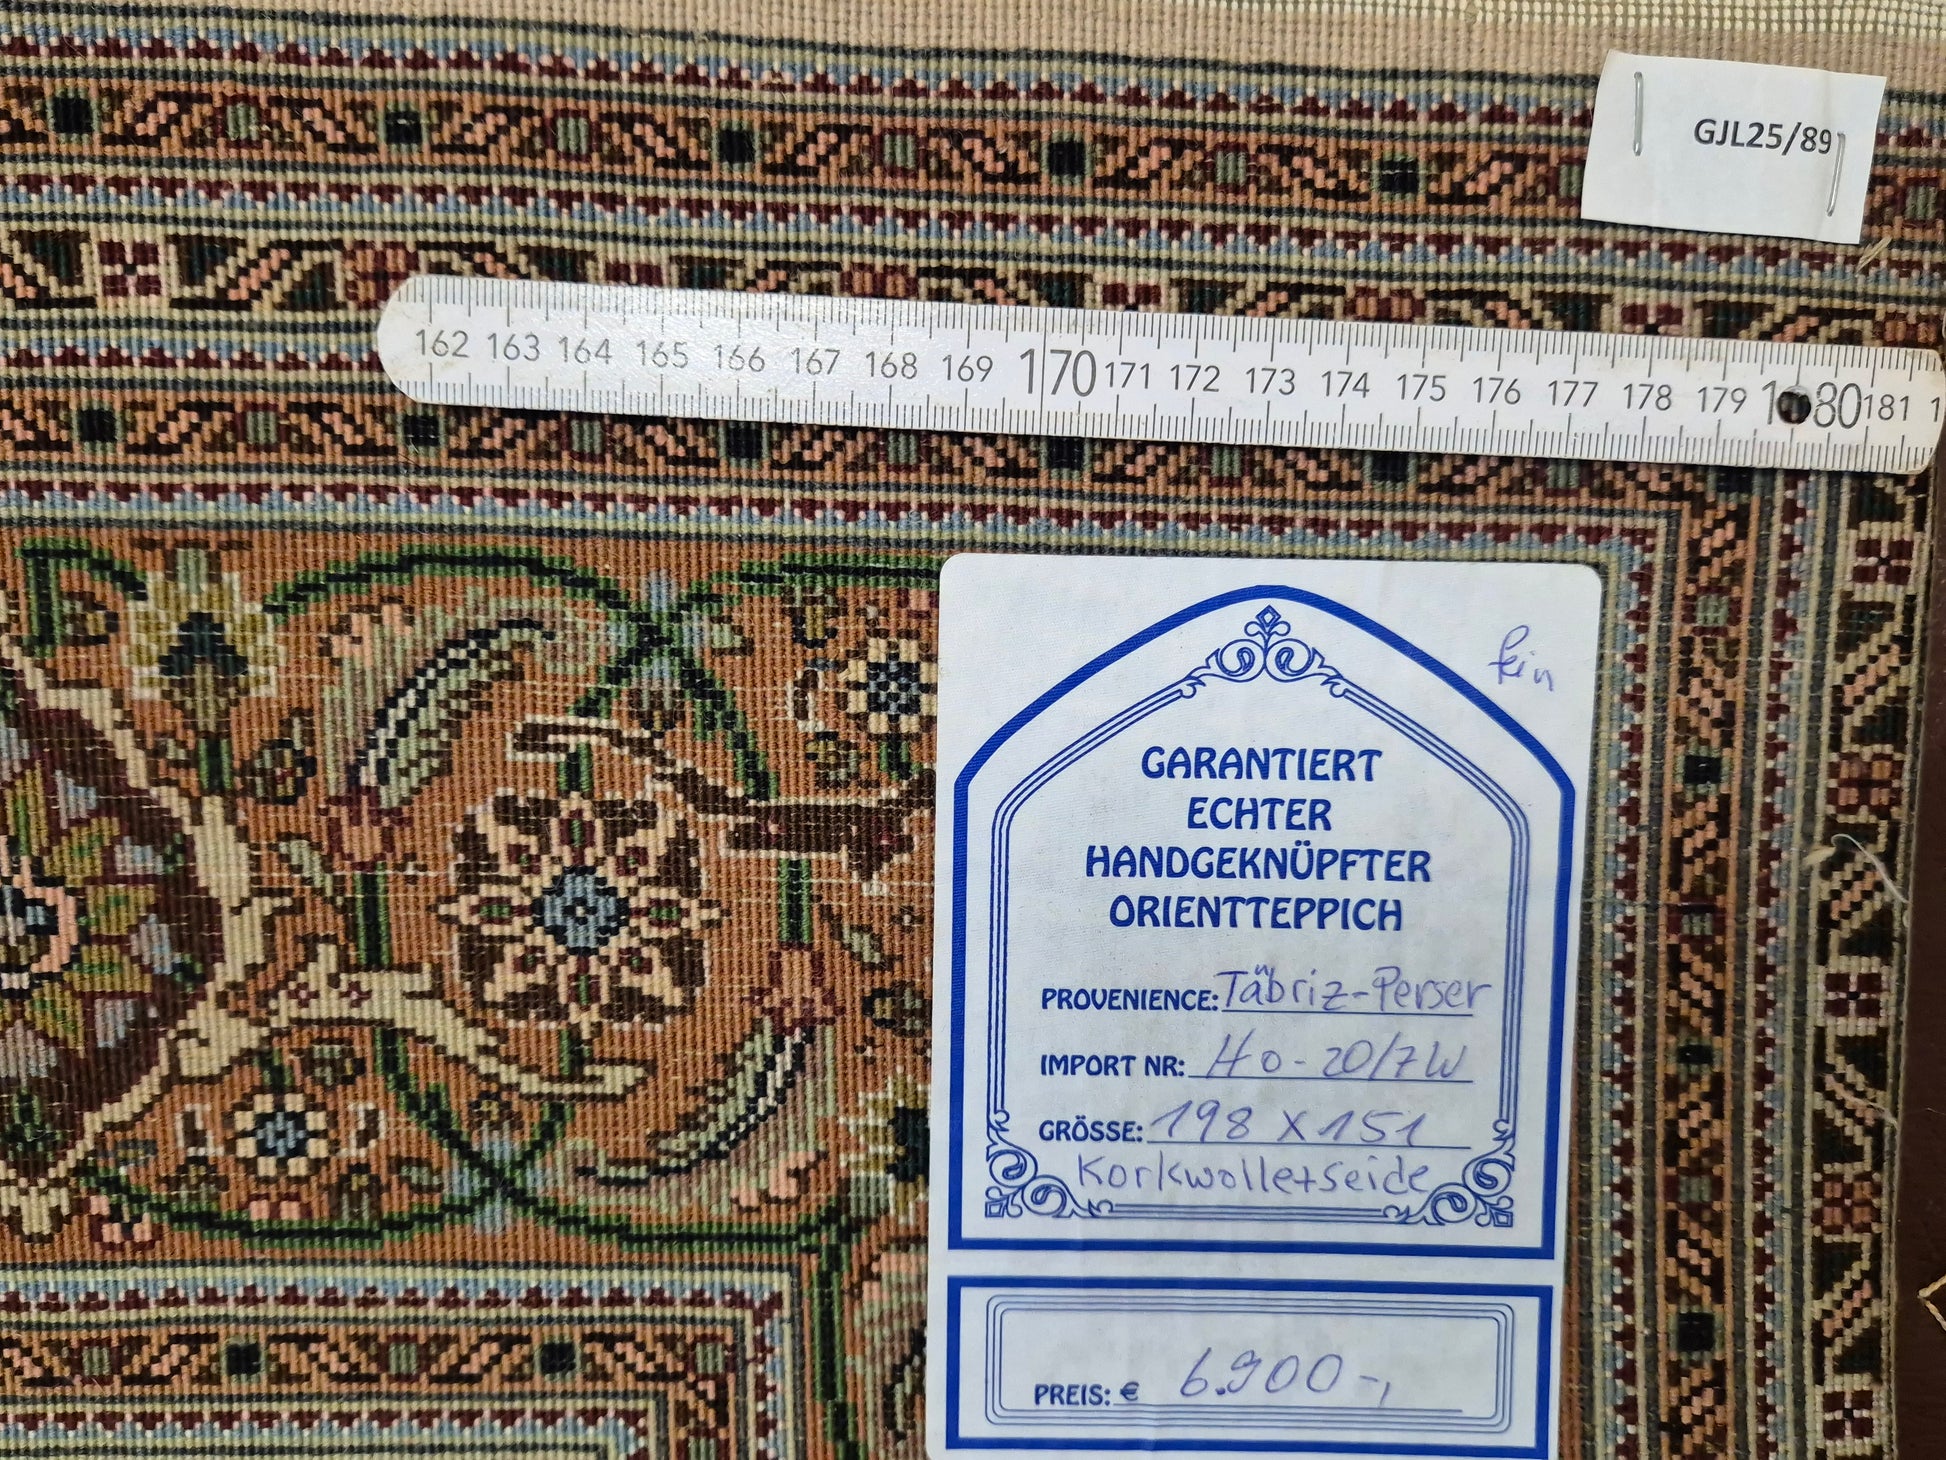 GJL25/89
162 163 164 165 166 167 168 169 170 171 172 173 174 175 176 177 178 179 180 181 1
fein
GARANTIERT
ECHTER
HANDGEKNÜPFTER
ORIENTTEPPICH
PROVENIENCE: Täbriz-Perser
IMPORT NR: Ho-20/7W
GRÖSSE: 198 x 151
Korkwolle+Seide
PREIS: € 6.900-,